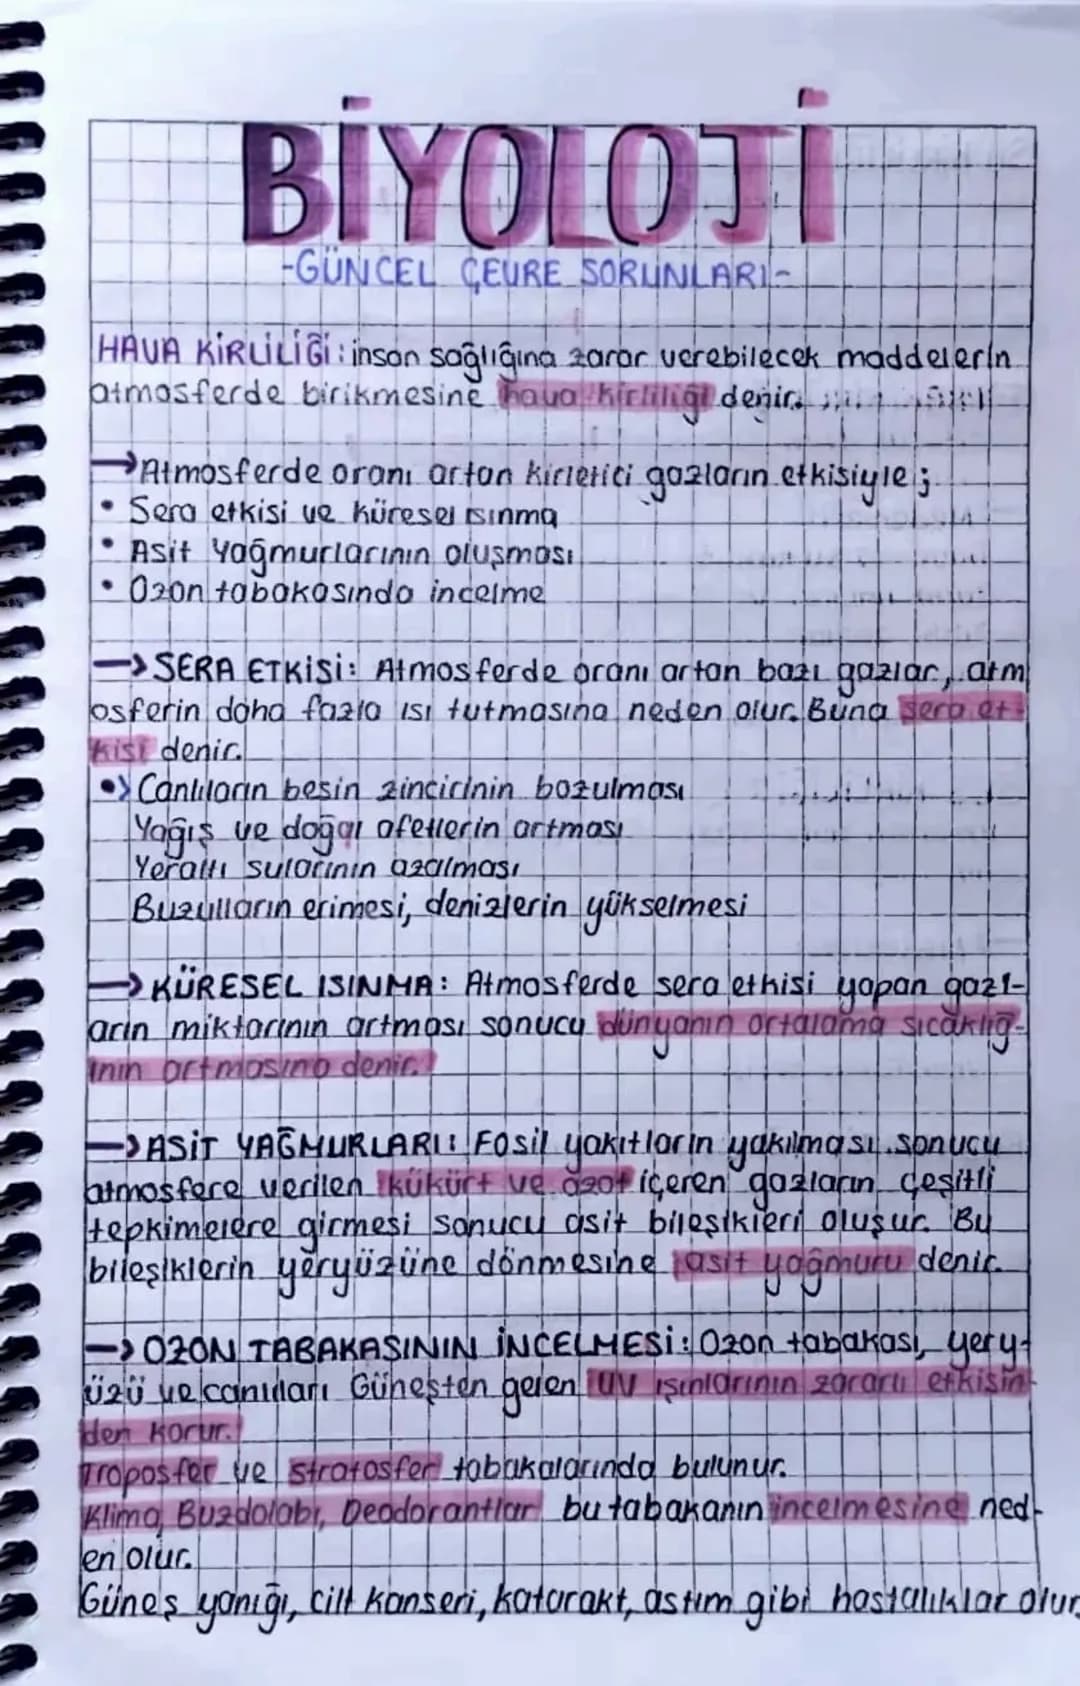 BİYOLOJİ
-GÜNCEL ÇEVRE SORUNLARI-
HAVA KİRLİLİĞİ: insan sağlığına zarar verebilecek maddelerin
atmosferde birikmesine hava kirliliği denir.
→Atmosferde oranı artan kirletici gazların etkisiyle;
• Sera etkisi ve küresel ısınma
• Asit Yağmurlarının oluşması
• Ozon tabakasında incelme
→SERA ETKİSİ: Atmosferde oranı artan bazı gazlar, atm
osferin daha fazla ısı tutmasına neden olur. Buna sera et-
kisi denir.
•) Canlıların besin zincirinin bozulması
Yağış ve doğal afetlerin artması
Yeraltı sularının azalması
Buzulların erimesi, denizlerin yükselmesi
→KÜRESEL ISINMA: Atmosferde sera etkisi yapan gazl-
arın miktarının artması sonucu dünyanın ortalama sıcaklığ-
ının artmasına denir.
→ASİT YAĞMURLARI: Fosil yakıtların yakılması sonucu
atmosfere verilen kükürt ve azot içeren gazların çeşitli
tepkimelere girmesi sonucu asit bileşikleri oluşur. Bu
bileşiklerin yeryüzüne dönmesine asit yağmuru denir.
→OZON TABAKASININ İNCELMESİ: Ozon tabakası, yery-
üzü ve canlıları Güneşten gelen UV ışınlarının zararlı etkisin-
den korur.
Troposfer ve stratosfer tabakalarında bulunur.
Klima, Buzdolabı, Deodorantlar bu tabakanın incelmesine ned-
en olur.
Güneş yanığı, cilt kanseri, katarakt, astım gibi hastalıklar olur.